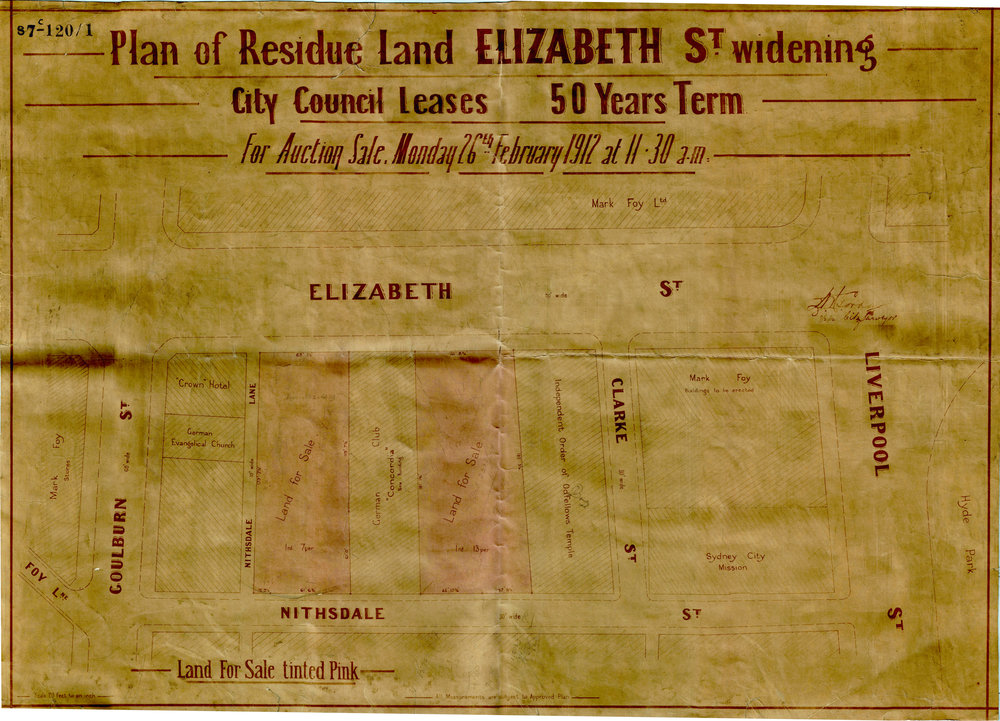 87-C120/1
Plan of Residue Land ELIZABETH ST widening
City Council Leases 50 Years Term
For Auction Sale, Monday 26th February 1912 at 11·30 a.m.
Mark Foy Ltd
ELIZABETH ST
wide
City Surveyor
"Crown" Hotel
German
Evangelical Church
NITHSDALE LANE
Land for Sale
German Club
"Concordia"
Land for Sale
Independent Order of Oddfellows Temple
CLARKE ST
Mark Foy
Buildings to be erected
Sydney City
Mission
LIVERPOOL ST
Hyde Park
Mark Foy
Stores
COULBURN ST
FOY LNE
NITHSDALE ST
wide
Land For Sale tinted Pink
All Measurements are subject to Approved Plan